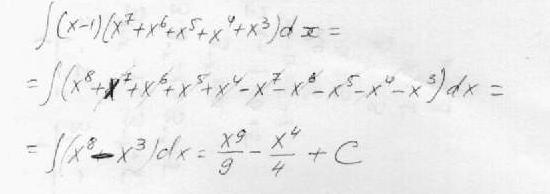 ∫(x-1)(x⁷+x⁶+x⁵+x⁴+x³)dx =
= ∫(x⁸+x⁷+x⁶+x⁵+x⁴-x⁷-x⁶-x⁵-x⁴-x³)dx =
= ∫(x⁸-x³)dx = x⁹/9 - x⁴/4 + C